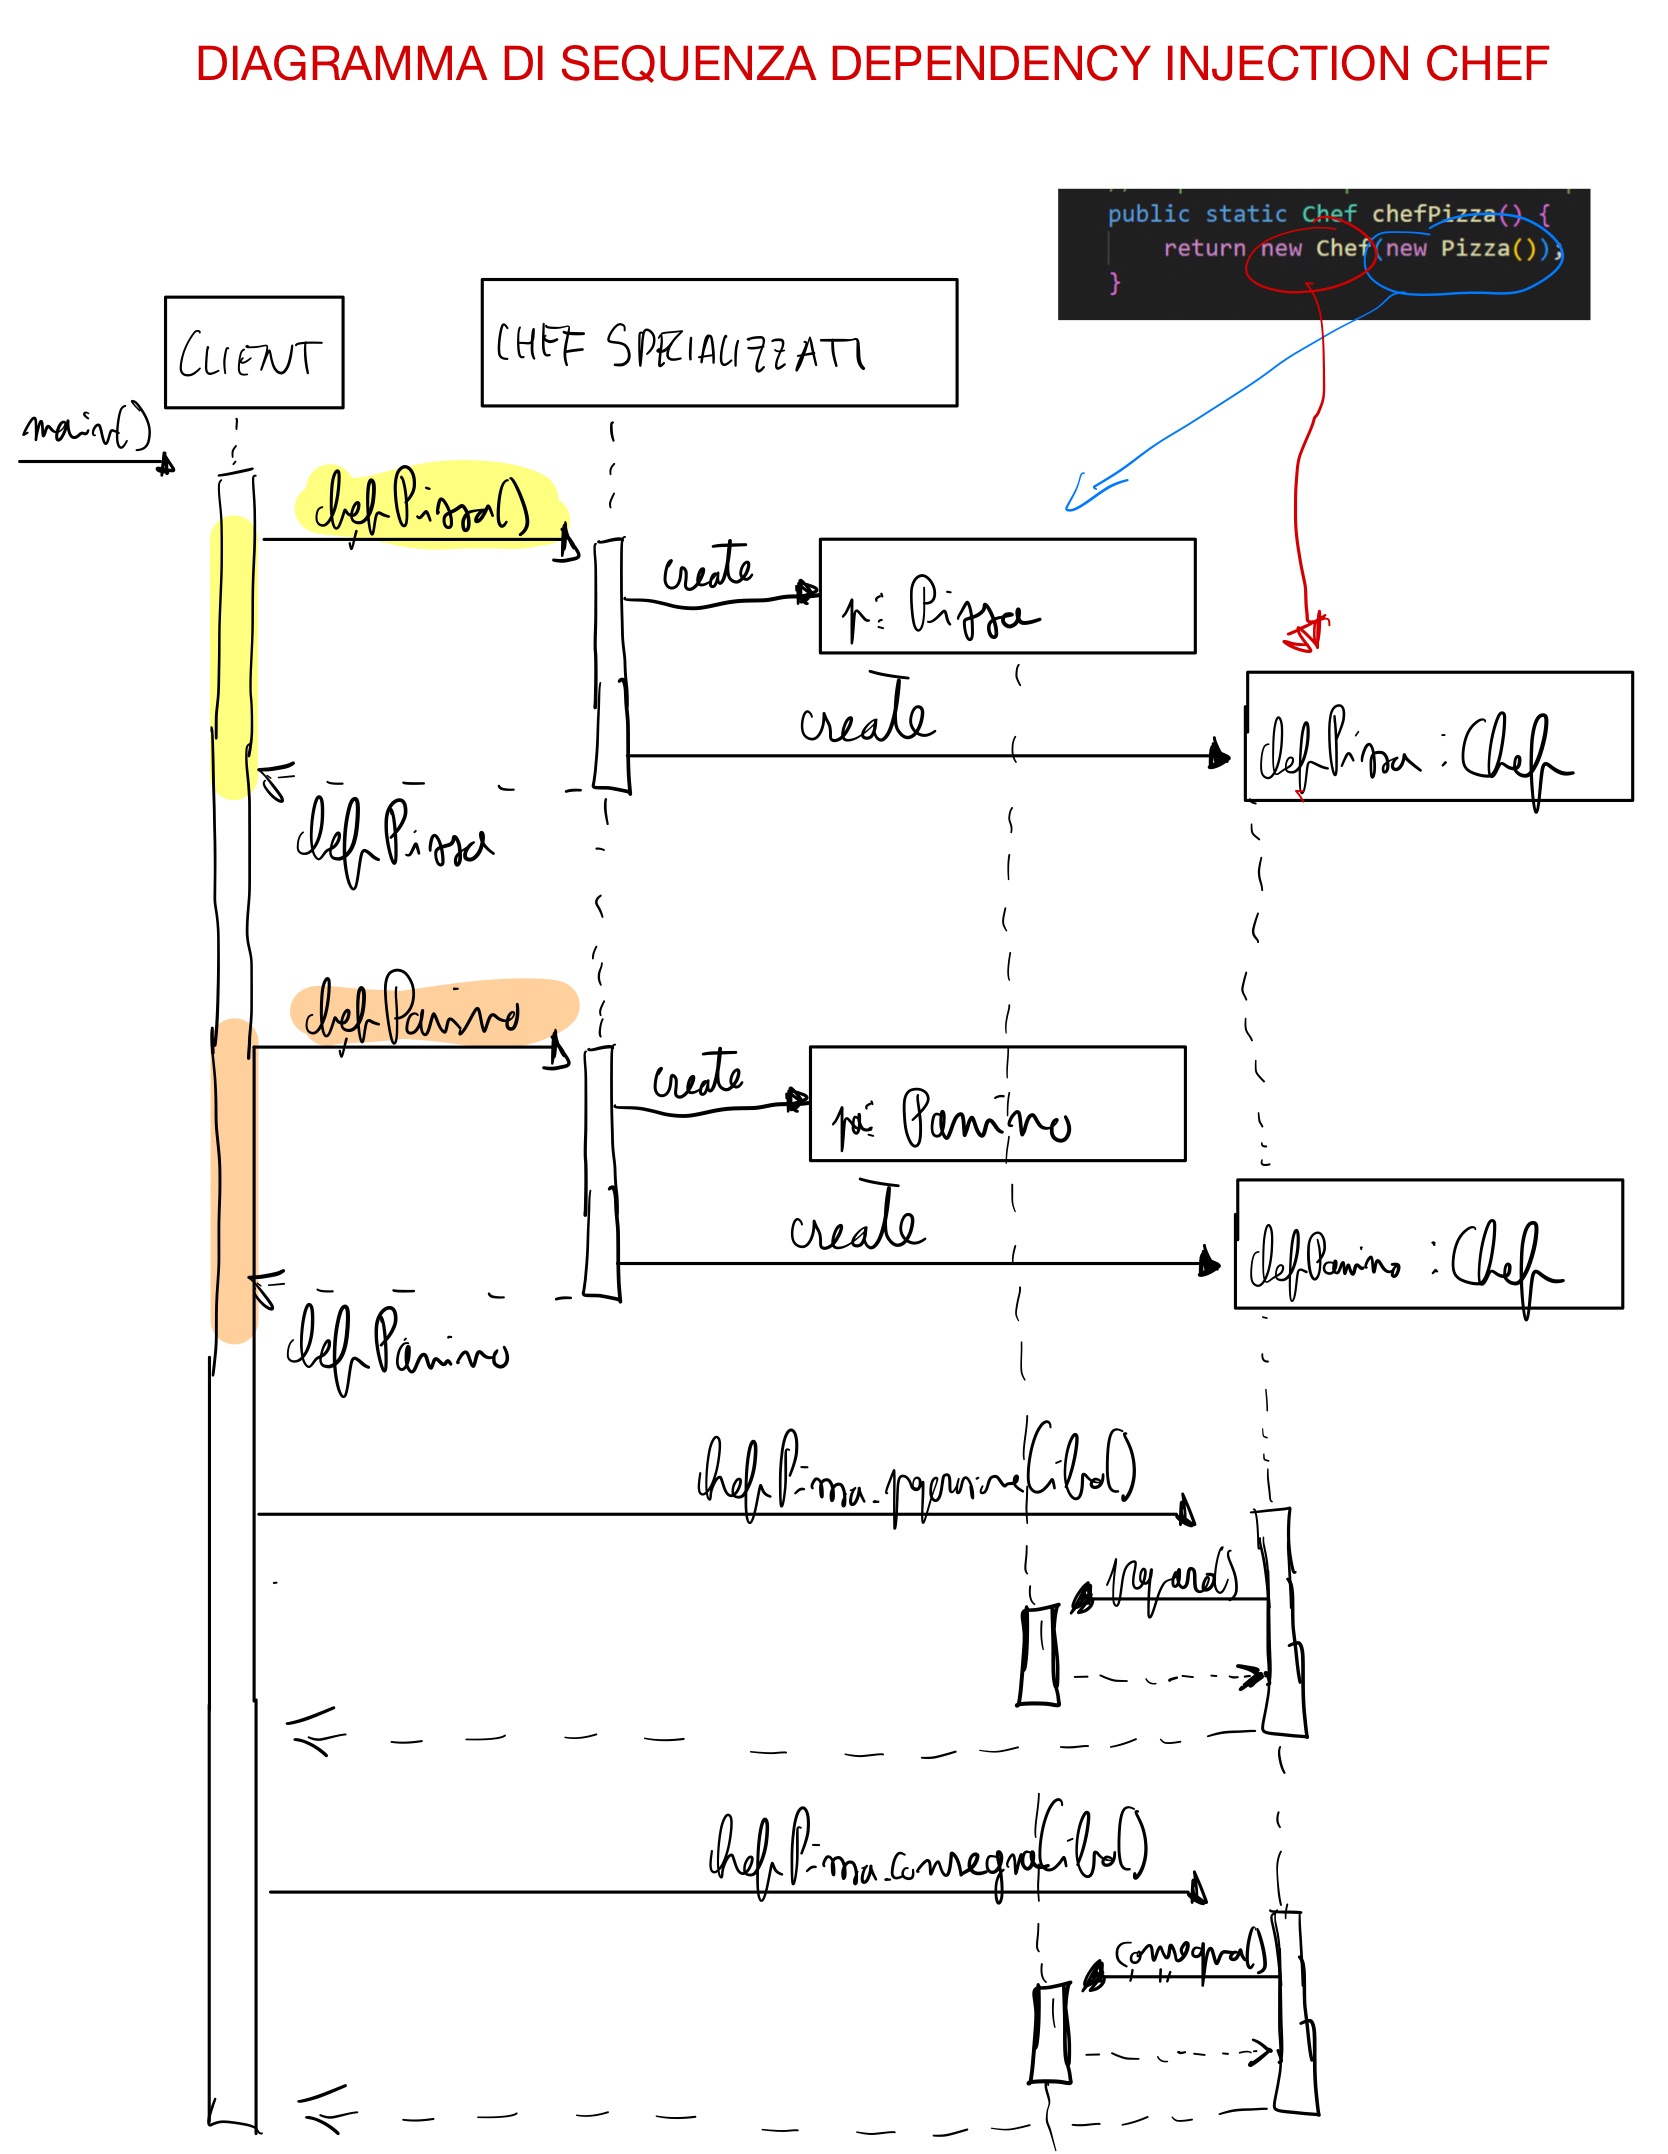 DIAGRAMMA DI SEQUENZA DEPENDENCY INJECTION CHEF
public static Chef chefPizza() {
return new Chef(new Pizza());
}
CLIENT
CHEF SPECIALIZZATI
main()
chefPizza()
create
p: Pizza
create
chefPizza : Chef
chefPizza
chefPanino
create
pa: Panino
create
chefPanino : Chef
chefPanino
chefPizza.preparazioneCibo()
prepara()
chefPizza.consegnaCibo()
consegna()